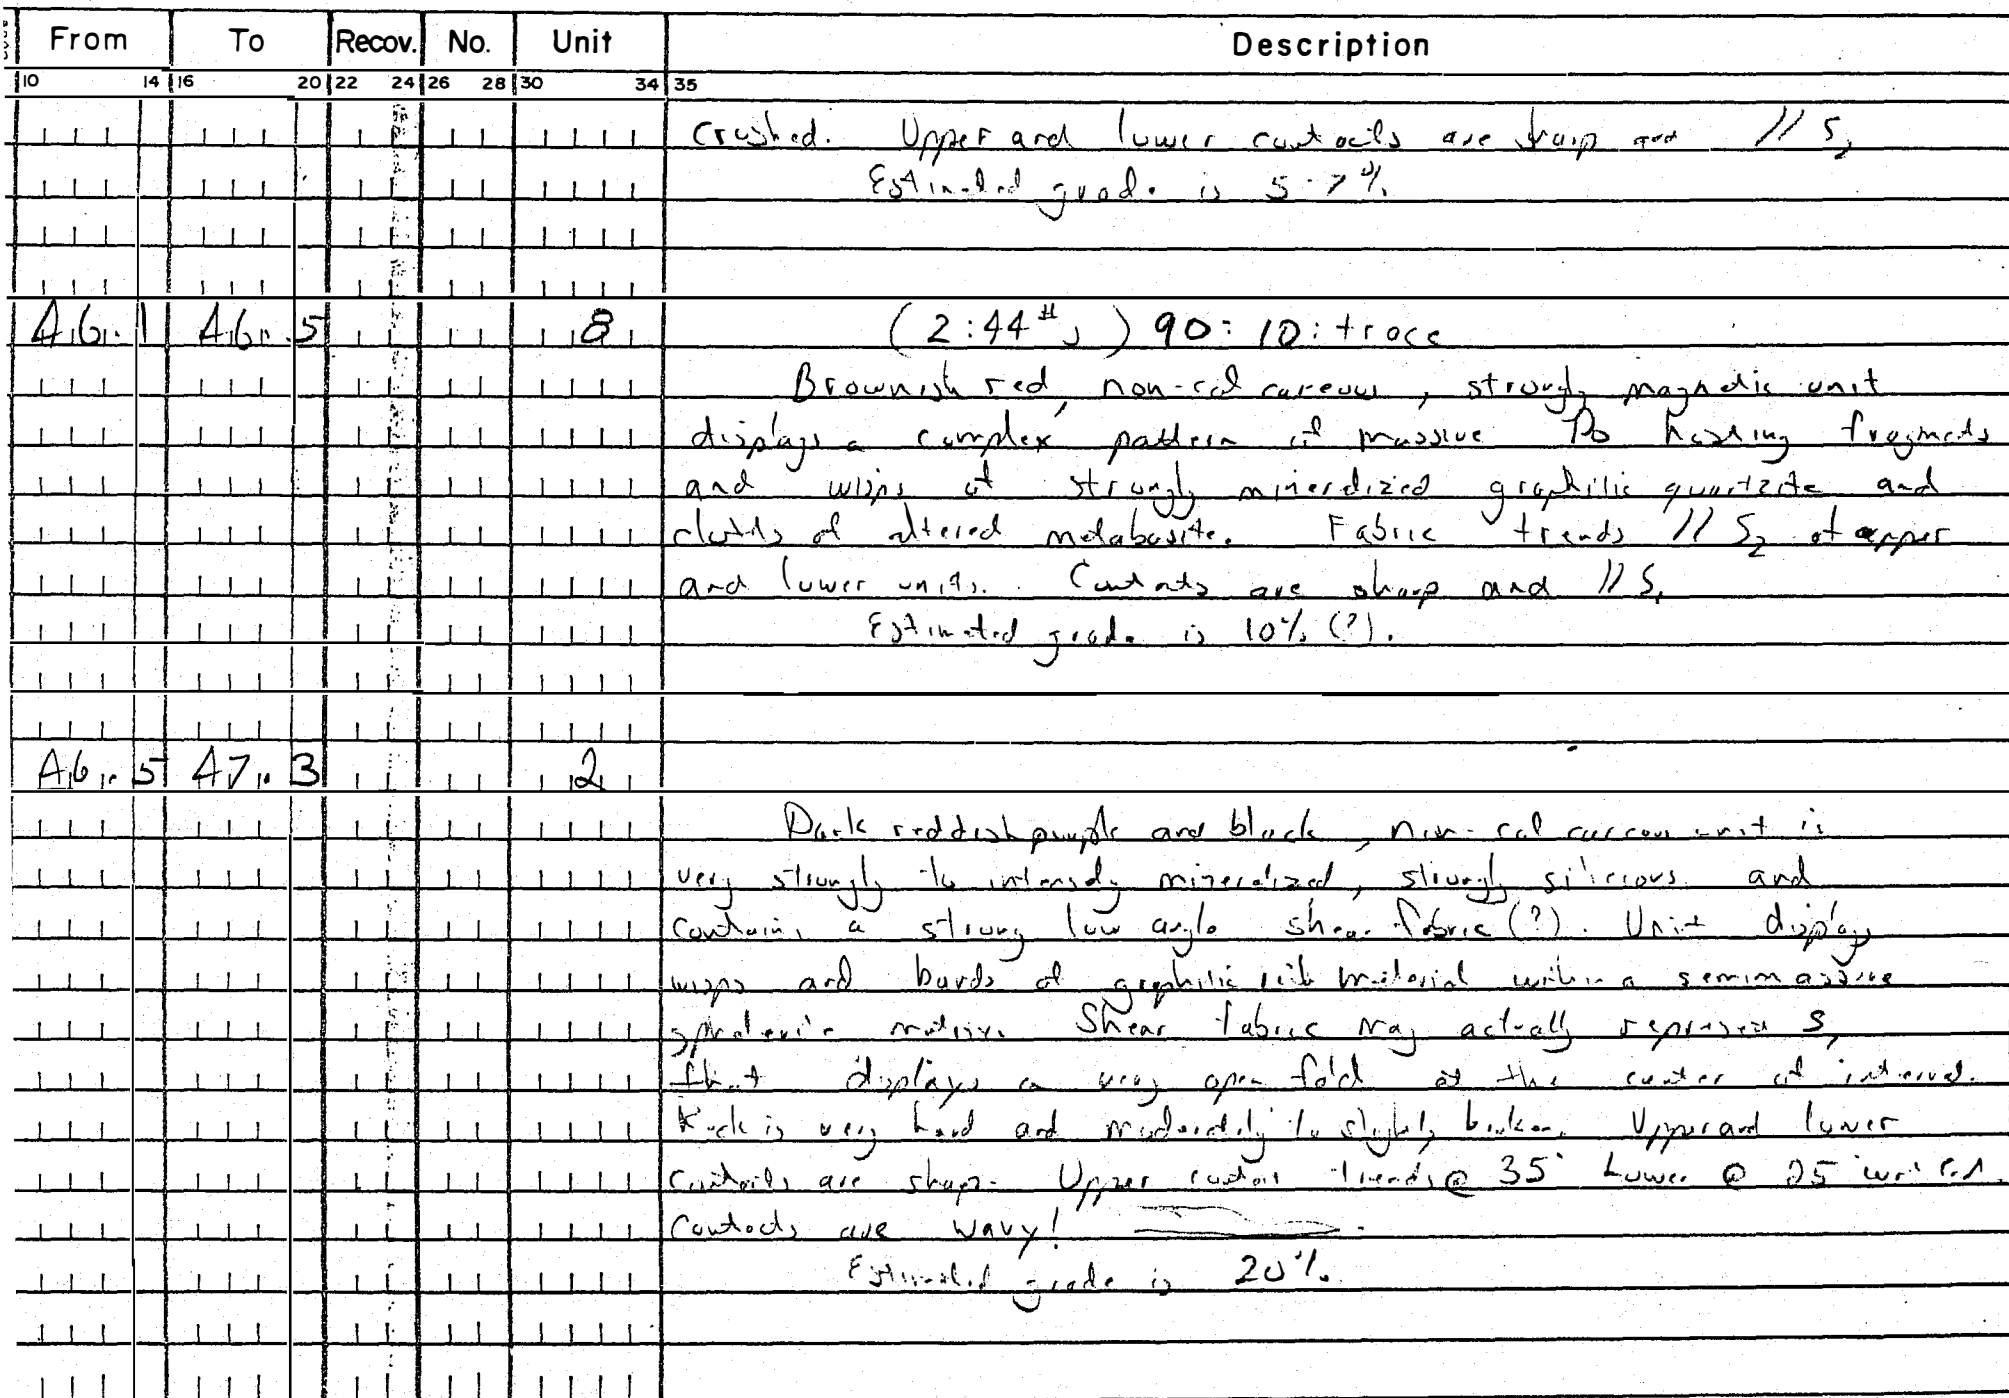 From To Recov. No. Unit Description
10 14 16 20 22 24 26 28 30 34 35
Crushed. Upper and lower contacts are sharp and // S2
Estimated grade is 5-7%
46.1 46.5 8 (2:44 ) 90:10:trace
Brownish red, non-calcareous, strongly magnetic unit
displays a complex pattern of massive Po hosting fragments
and wisps of strongly mineralized graphitic quartzite and
of altered metabasite. Fabric trends // S2 at upper
and lower units. Contacts are sharp and // S1
Estimated grade is 10% (?).
46.5 47.3 2
Dark reddish purple and black, non-calcareous unit is
very strongly to intensely mineralized, strongly silicious and
contains a strong low angle shear fabric (?). Unit displays
wisps and bands of graphitic material within a semimassive
sphalerite matrix. Shear fabric may actually represent S1
that displays a very open fold at the center of interval.
Rock is very hard and moderately to slightly broken. Upper and lower
contacts are sharp. Upper contact trends @ 35° Lower @ 25°
Contacts are wavy!
Estimated grade is 20%